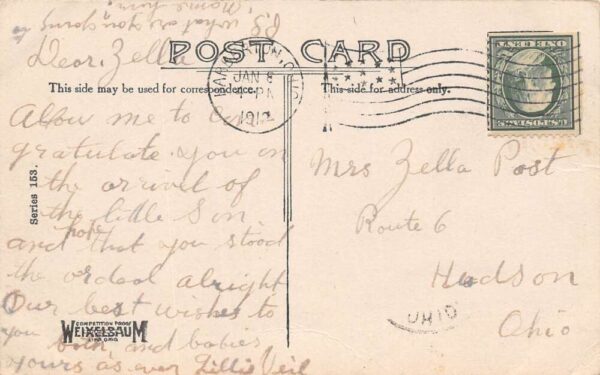 POST CARD
This side may be used for correspondence.
This side for address only.
JAN 8
1912
Dear Zella
Allow me to con
gratulate you on
the arrival of
the little Son
and hope that you stood
the ordeal alright
Our best wishes to
you both and babies
yours as ever Lillis Veil
P.S. what are you going
name him
Mrs Zella Post
Route 6
Hudson
Ohio
OHIO
Series 153.
COMPETITION PROOF
WEIXELBAUM
LIMA, OHIO
U.S. POSTAGE